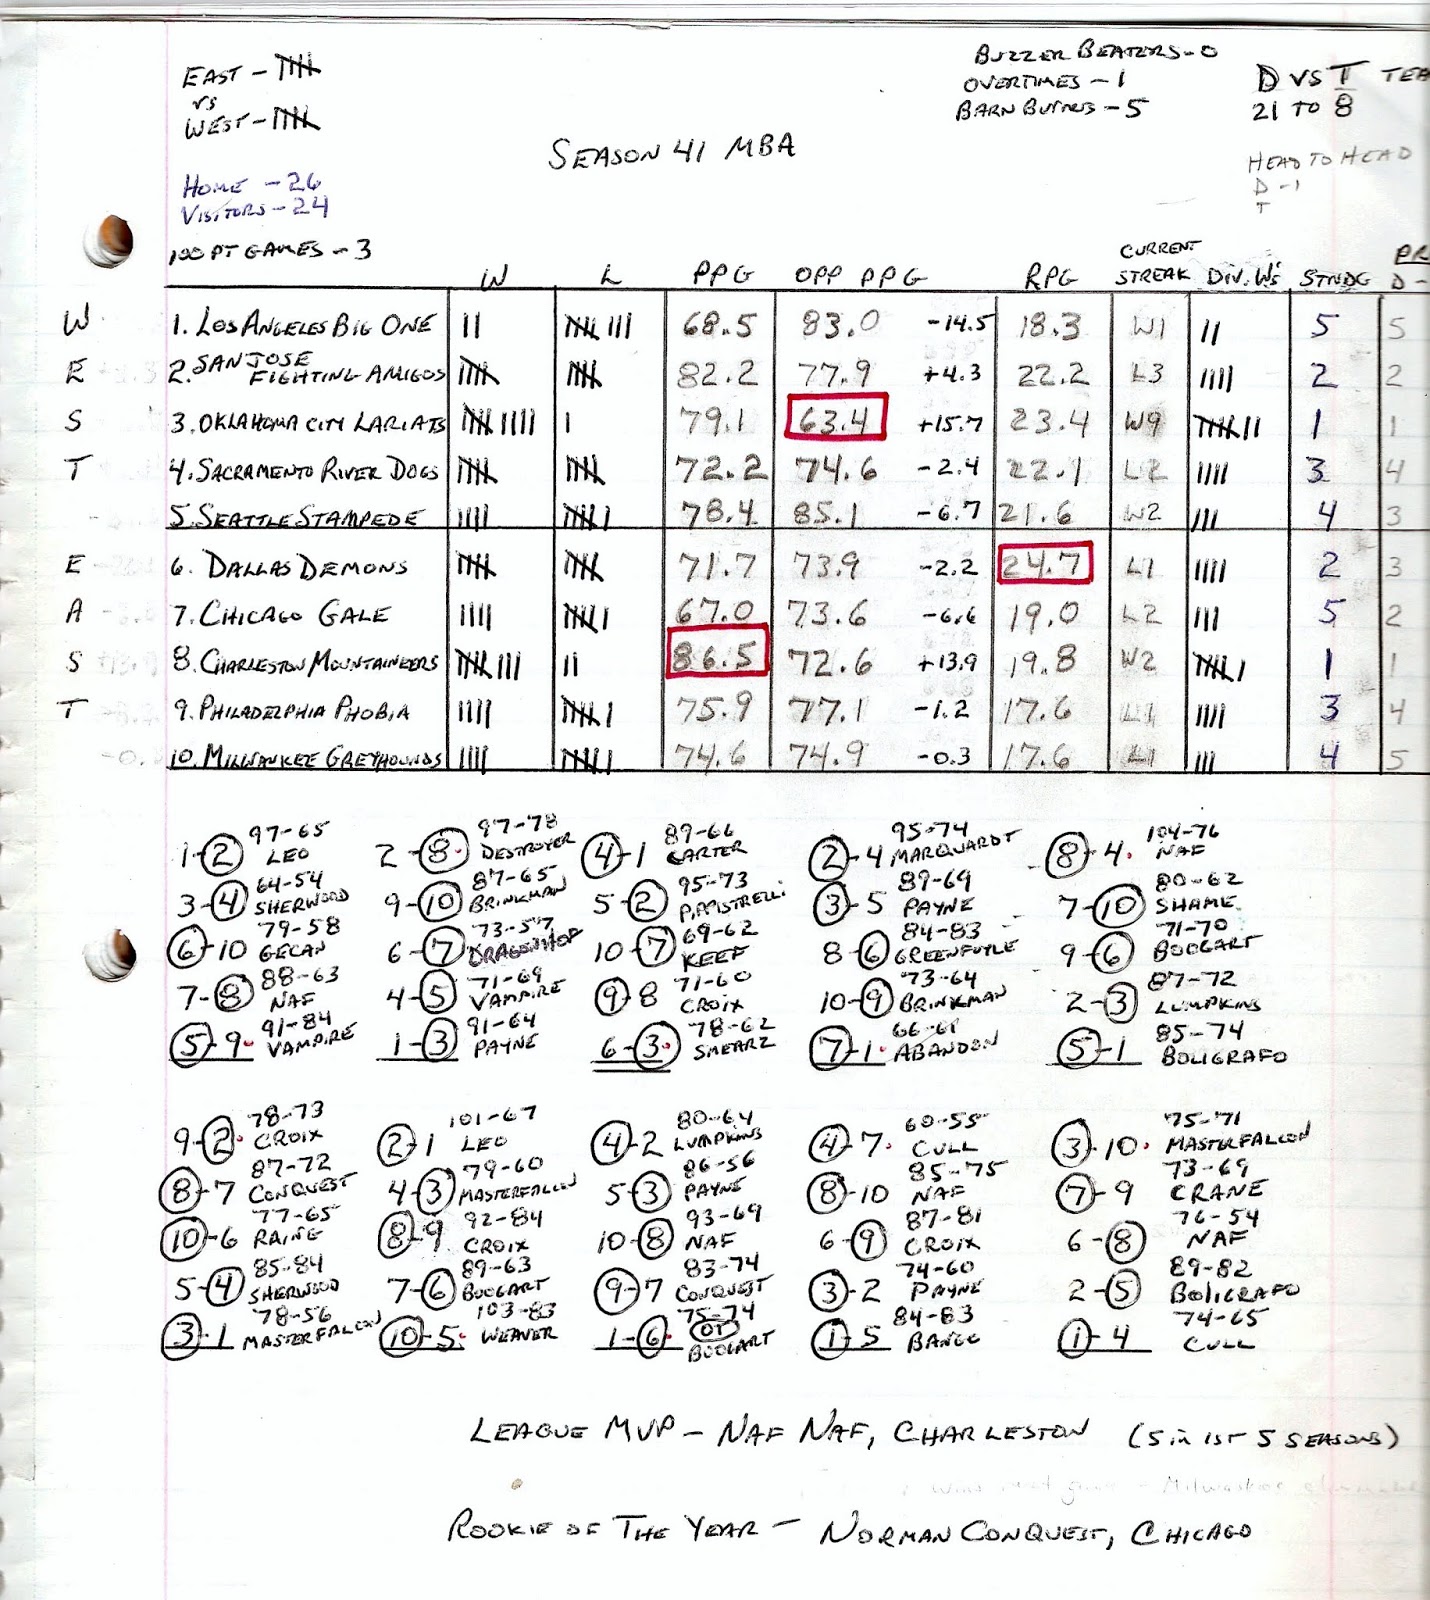 EAST - 5
vs
WEST - 5
HOME - 26
VISITORS - 24
100 PT GAMES - 3
SEASON 41 MBA
BUZZER BEATERS - 0
OVERTIMES - 1
BARN BURNERS - 5
D VS T TEA
21 TO 8
HEAD TO HEAD
D - 1
T
W L PPG OPP PPG RPG CURRENT STREAK DIV. W'S STNDG PR D -
W 1. LOS ANGELES BIG ONE 2 8 68.5 83.0 -14.5 18.3 W1 2 5 5
E 2. SAN JOSE FIGHTING AMIGOS 5 5 82.2 77.9 +4.3 22.2 L3 4 2 2
S 3. OKLAHOMA CITY LARIATS 9 1 79.1 63.4 +15.7 23.4 W9 7 1 1
T 4. SACRAMENTO RIVER DOGS 5 5 72.2 74.6 -2.4 22.1 L2 4 3 4
5. SEATTLE STAMPEDE 4 6 78.4 85.1 -6.7 21.6 W2 3 4 3
E 6. DALLAS DEMONS 5 5 71.7 73.9 -2.2 24.7 L1 4 2 3
A 7. CHICAGO GALE 4 6 67.0 73.6 -6.6 19.0 L2 3 5 2
S 8. CHARLESTON MOUNTAINEERS 8 2 86.5 72.6 +13.9 19.8 W2 6 1 1
T 9. PHILADELPHIA PHOBIA 4 6 75.9 77.1 -1.2 17.6 L1 4 3 4
10. MILWAUKEE GREYHOUNDS 4 6 74.6 74.9 -0.3 17.6 L1 3 4 5
1-2 97-65 LEO 2-8 97-78 DESTROYER 4-1 89-66 CARTER 2-4 95-74 MARQUARDT 8-4 104-76 NAF
3-4 64-54 SHERWOOD 9-10 87-65 BRINKMAN 5-2 95-73 PIPISTRELLI 3-5 89-69 PAYNE 7-10 80-62 SHAME
6-10 79-58 GECAN 6-7 73-57 DRAGONHOF 10-7 69-62 KEEF 8-6 84-83 GREENFOYLE 9-6 71-70 BOOGART
7-8 88-63 NAF 4-5 71-69 VAMPIRE 9-8 71-60 CROIX 10-9 73-64 BRINKMAN 2-3 87-72 LUMPKINS
5-9 91-84 VAMPIRE 1-3 91-64 PAYNE 6-3 78-62 SMEARZ 7-1 66-61 ABANDON 5-1 85-74 BOLIGRAFO
9-2 78-73 CROIX 2-1 101-67 LEO 4-2 80-64 LUMPKINS 4-7 60-55 CULL 3-10 75-71 MASTERFALCON
8-7 87-72 CONQUEST 4-3 79-60 MASTERFALCON 5-3 86-56 PAYNE 8-10 85-75 NAF 7-9 73-69 CRANE
10-6 77-65 RAINE 8-9 92-84 CROIX 10-8 93-69 NAF 6-9 87-81 CROIX 6-8 76-54 NAF
5-4 85-84 SHERWOOD 7-6 89-63 BOOGART 9-7 83-74 CONQUEST 3-2 74-60 PAYNE 2-5 89-82 BOLIGRAFO
3-1 78-56 MASTERFALCON 10-5 103-83 WEAVER 1-6 75-74 OT BOOGART 1-5 84-83 BANGG 1-4 74-65 CULL
LEAGUE MVP - NAF NAF, CHARLESTON (5 in 1ST 5 SEASONS)
ROOKIE OF THE YEAR - NORMAN CONQUEST, CHICAGO